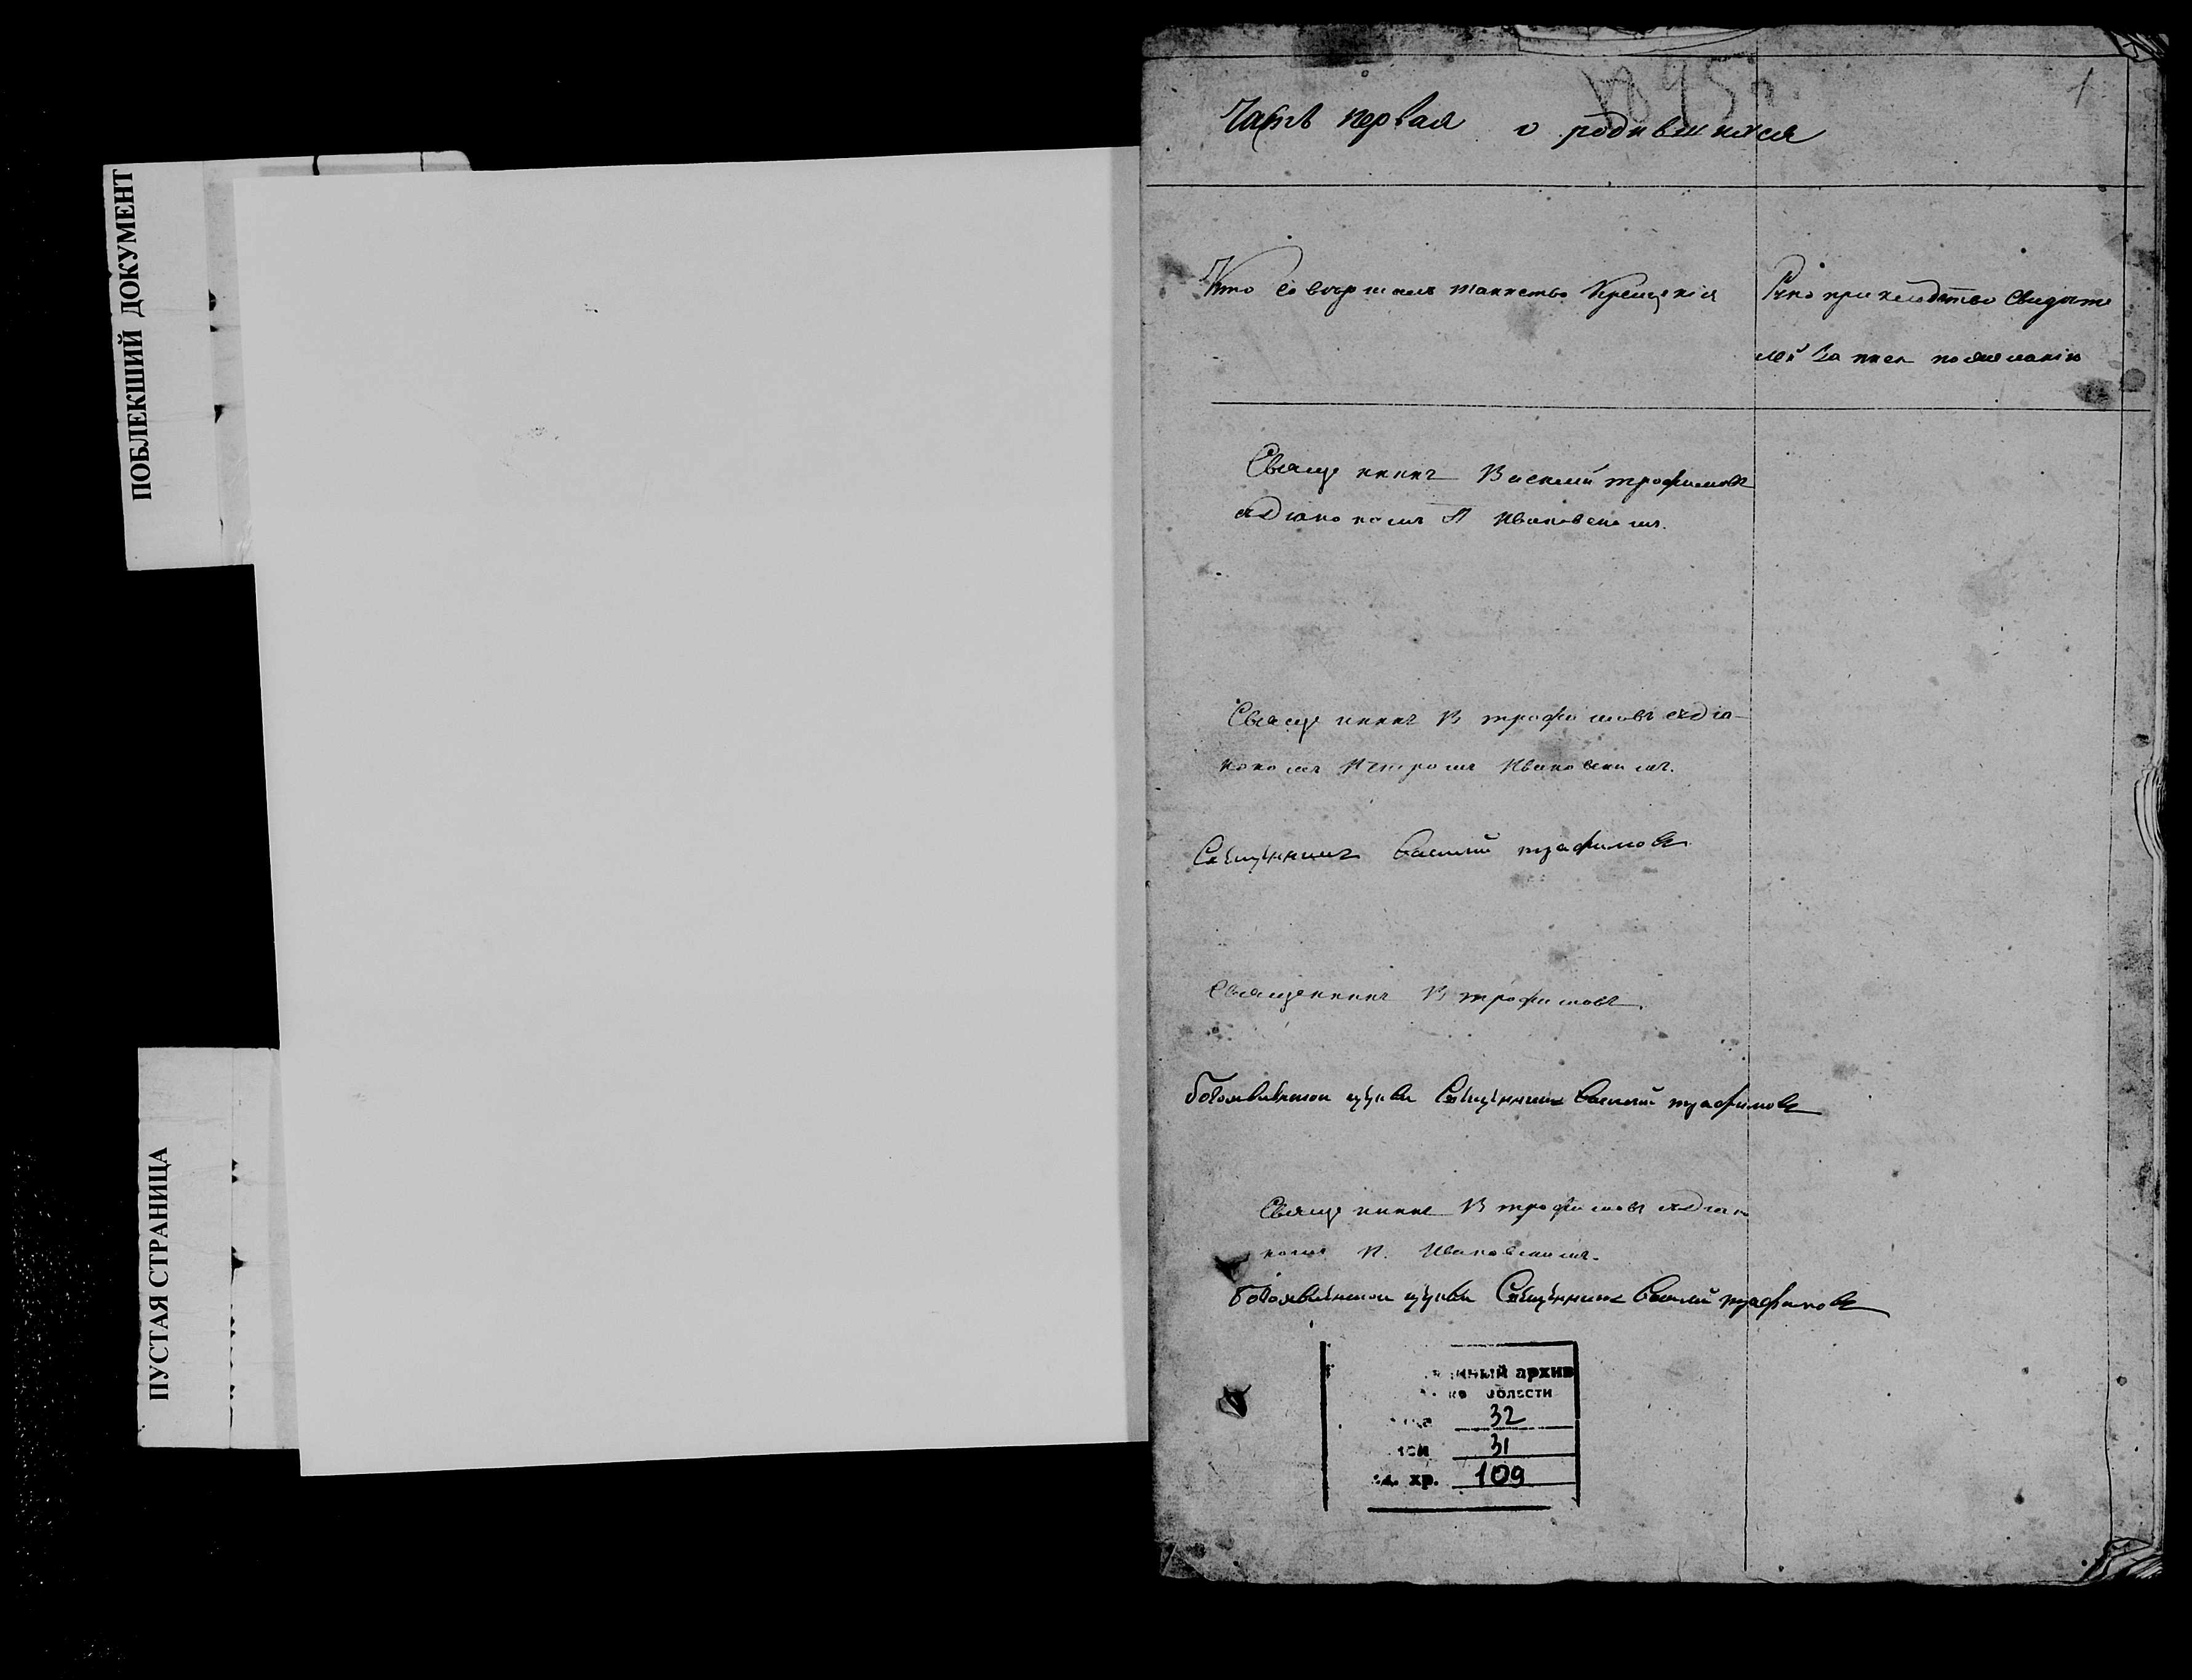 ПОБЛЕКШИЙ ДОКУМЕНТ
ПУСТАЯ СТРАНИЦА
1
Часть первая о родившихся
Кто совершалъ таинство Крещенія
Рукоприкладство свидѣте
лей записи по желанію
Священникъ Василій Трофимовъ
съ Діакономъ П Ивановскимъ.
Священникъ В Трофимовъ съ Діа-
кономъ Петромъ Ивановскимъ.
Священникъ Василій Трофимовъ
Священникъ В Трофимовъ.
Богоявленской церкви Священникъ Василій Трофимовъ
Священникъ В Трофимовъ съ Діако
номъ П. Ивановскимъ.
Богоявленской церкви Священникъ Василій Трофимовъ
нный архив
области
32
31
хр. 109